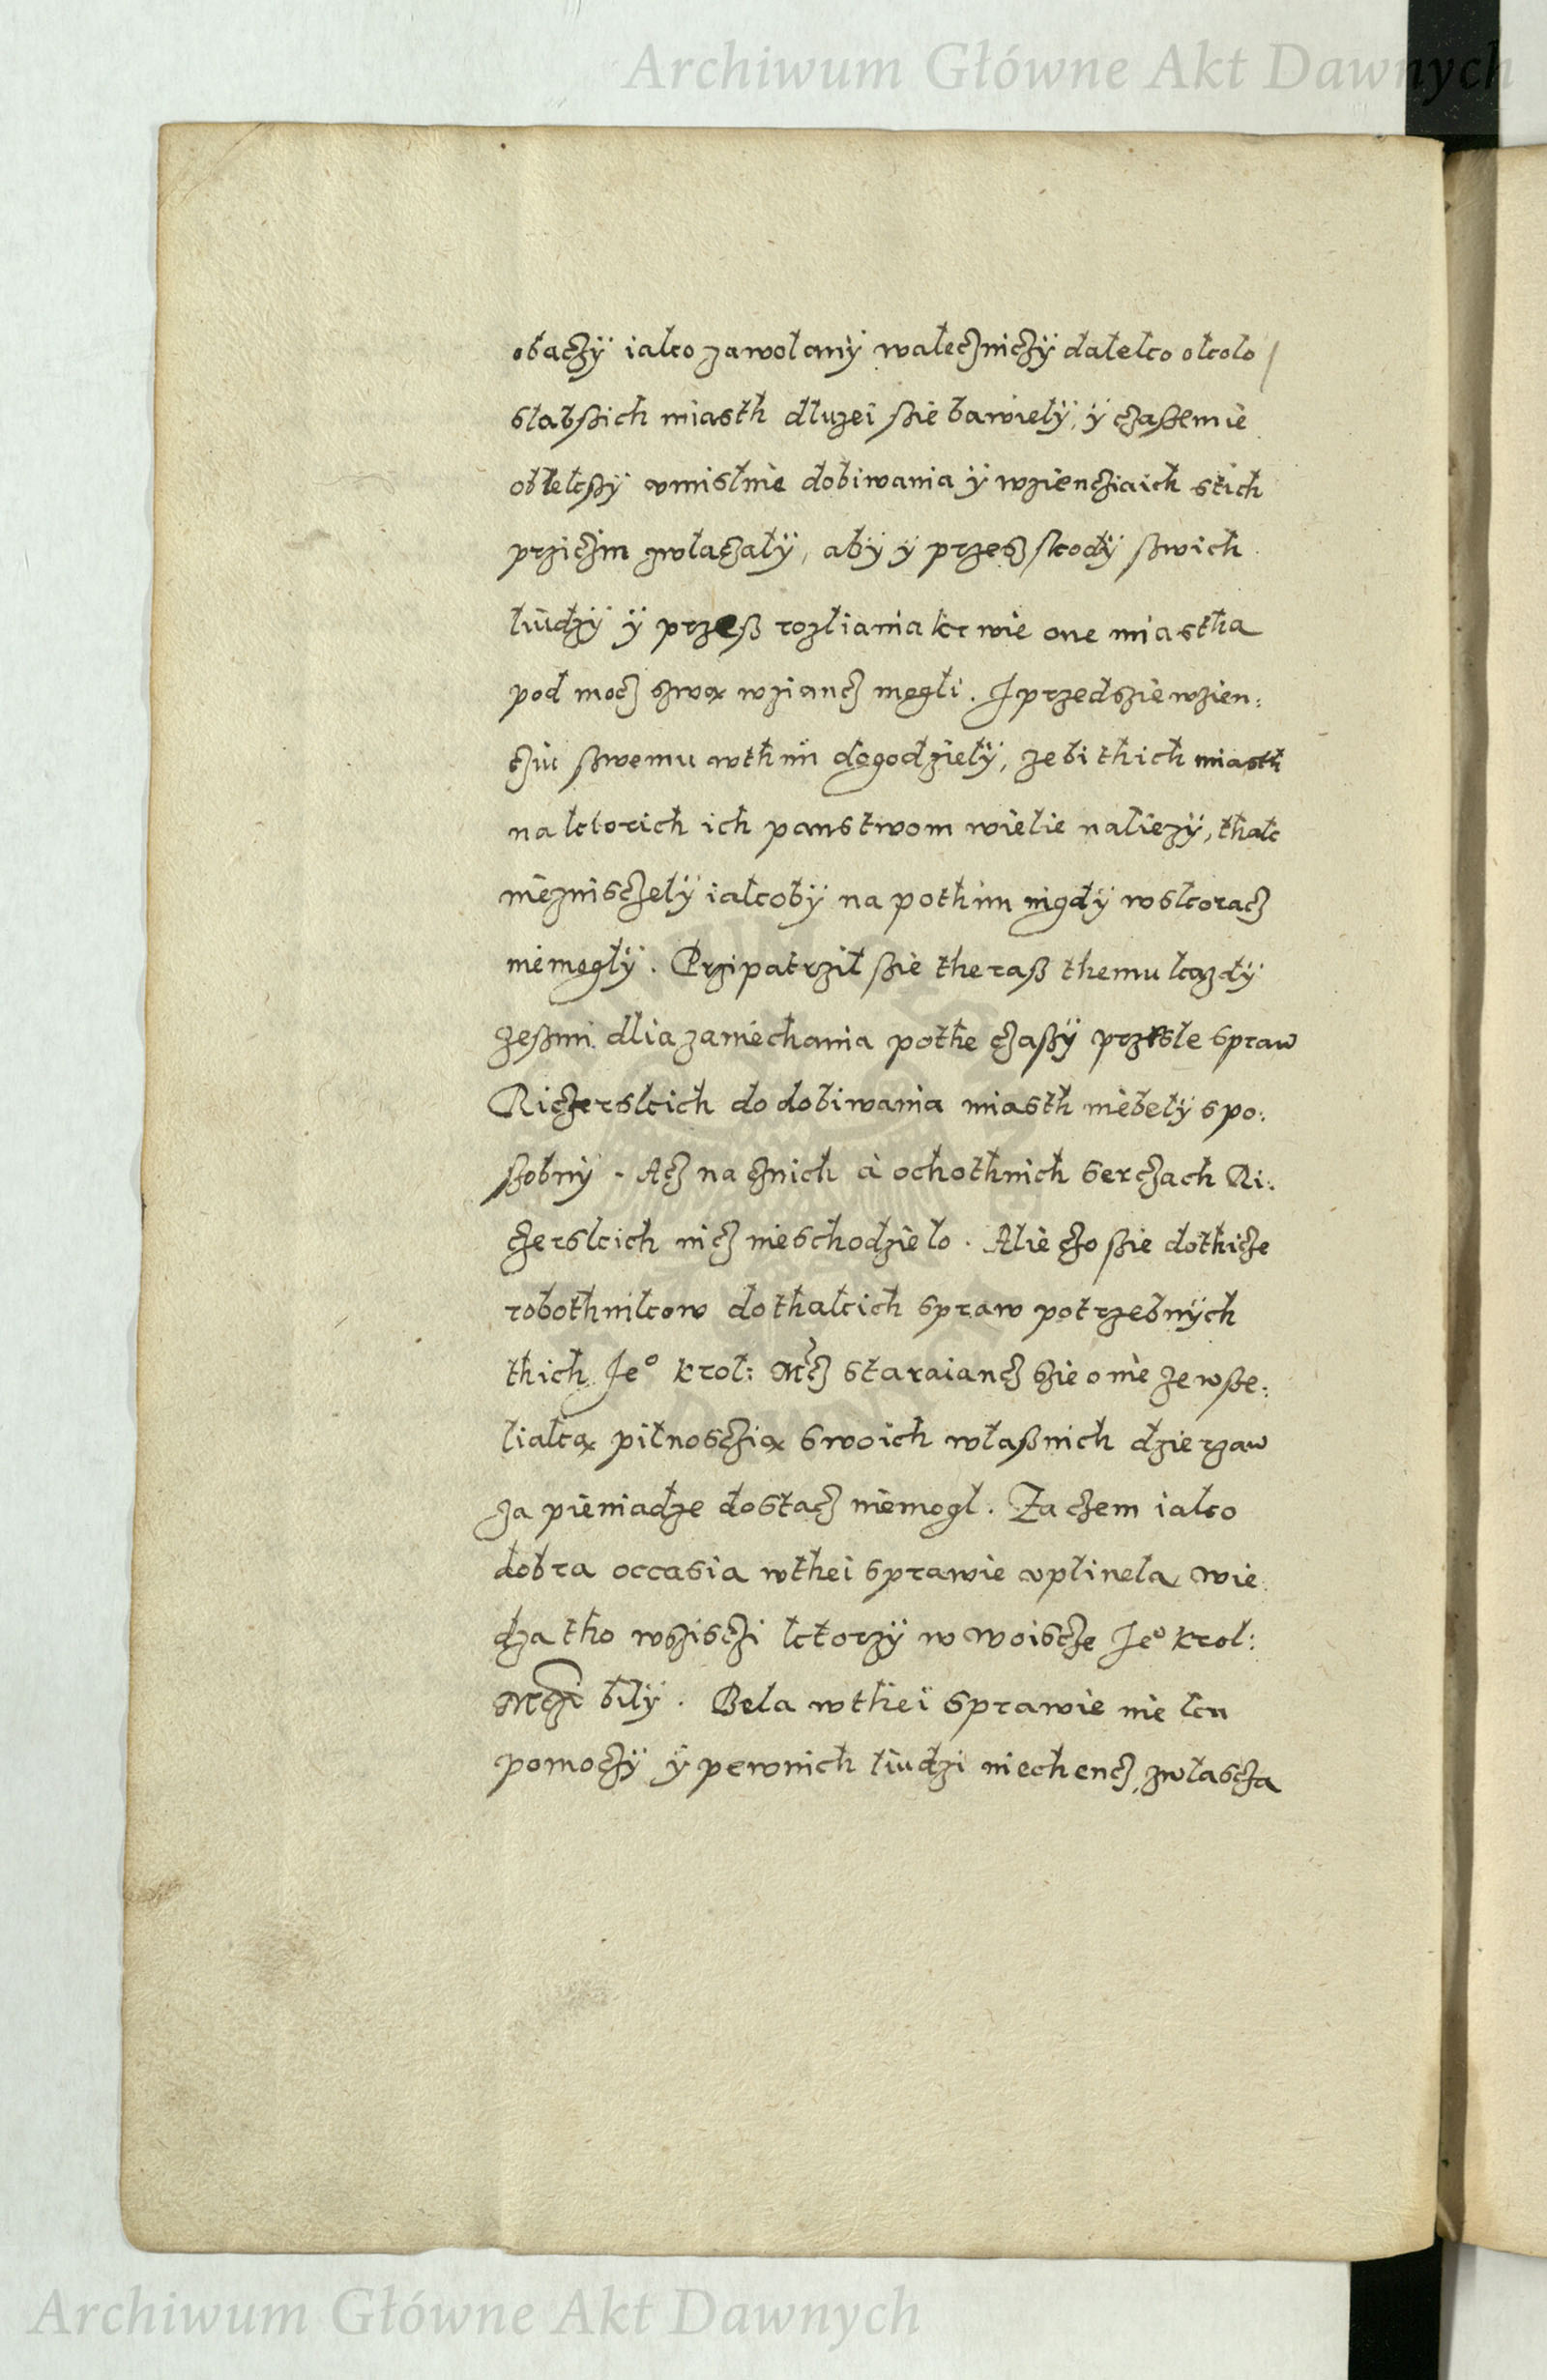 Archiwum Główne Akt Dawnych
obaczÿ iako zawołanÿ walecznicżÿ daleko około /
słabßich miasth dłuzei ßie bawielÿ, ÿ czaßem ie
obległßÿ vmislnie dobiwania ÿ wzienczia ich stich
prziczin zwłaczałÿ, abÿ ÿ przesz skodÿ ßwich
liudzÿ ÿ przeß rozliania krwie one miastha
pod mocz szwą wziancz mogli. J przedszie wzien:
cziu ßwemu wthim dogodzielÿ, zebi thich miasth
na ktorich ich panstwom wielie naliezÿ, thak
niezniscżelÿ iakobÿ na pothim nigdÿ wskoracz
niemoglÿ. Przipatrzil ßie theraß themu kazdÿ
zeßmi dlia zaniechania pothe czaßÿ przesle spraw
Riczerskich do dobiwania miasth niebelÿ spo:
ßobnÿ. Acz na cznich a ochothnich serczach Ri:
czerskich nicz nieschodzielo. Alie czo ßie dothicze
robothnikow do thakich spraw potrzebnÿch
thich Je° krol: Mcz staraiancz szie o nie ze wße:
liaką pilnoscżią swoich właßnich dzierzaw
za pieniadze dostacz niemogl. Za czem iako
dobra occasia wthei sprawie vplinela, wie
dza tho wszisczi ktorzÿ w woiscze Je° krol:
Mczi bilÿ. Bela wthei sprawie nie ku
pomoczÿ ÿ pewnich liudzi niechencz, zwłascza
Archiwum Główne Akt Dawnych